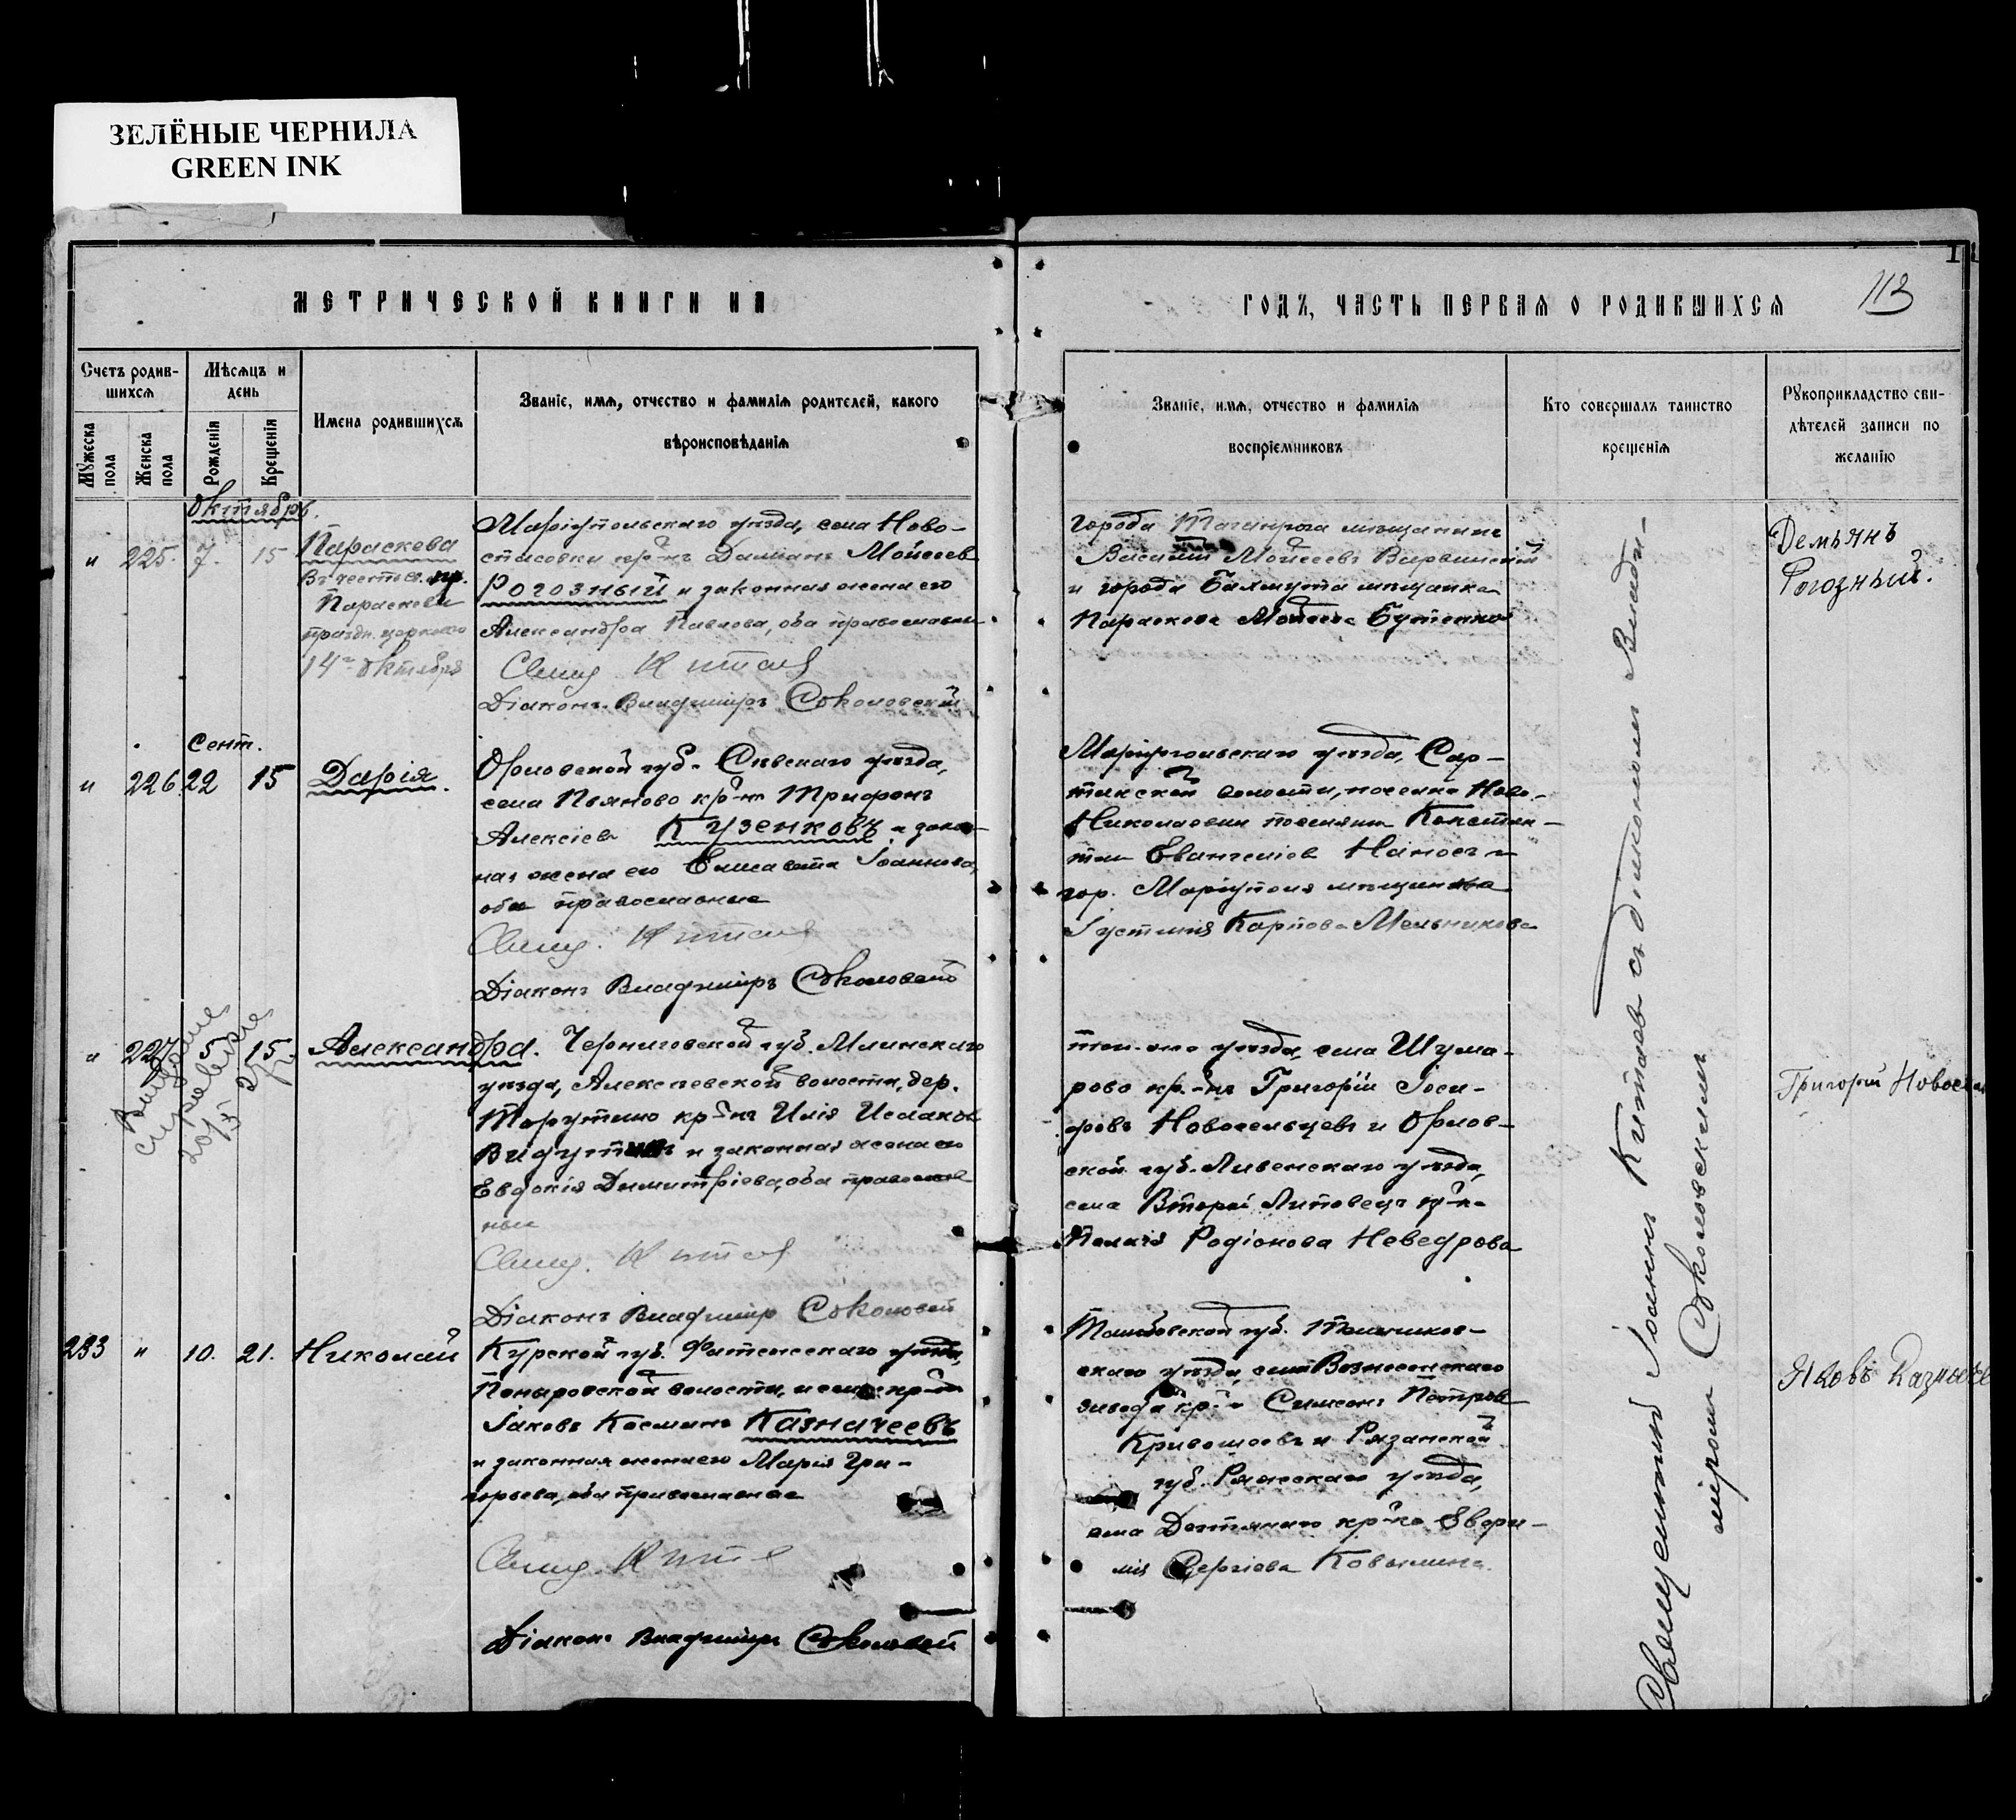 ЗЕЛЁНЫЕ ЧЕРНИЛА
GREEN INK
МЕТРИЧЕСКОЙ КНИГИ НА
Счетъ родив-
шихся
Мѣсяцъ и
день
Мужеска
пола
Женска
пола
Рожденія
Крещенія
Имена родившихся
Званіе, имя, отчество и фамилія родителей, какого
вѣроисповѣданія
Октябрь.
и 225. 7. 15
Параскева
Въ честь св. пр.
Параскевы
праздн. церковью
14го Октября
Маріупольскаго уѣзда, села Ново-
спасовки кр-нъ Даміанъ Моисеевъ
Рогозный и законная жена его
Александра Павлова, оба православные
Свящ. Китаевъ
Діаконъ Владиміръ Соколовскій
Сент.
и 226 22 15 Дарія.
Орловской губ. Сѣвскаго уѣзда,
села Пьяново кр-нъ Трифонъ
Алексіевъ Кузенковъ и закон-
ная жена его Елисавета Іоаннова,
оба православные
Свящ. Китаевъ
Діаконъ Владиміръ Соколовскій
и 227 5 15 Александра.
Выдана
справка
Черниговской губ. Мглинскаго
уѣзда, Алексѣевской волости, дер.
кр-нъ Илія Исааковъ
и законная жена его
Евдокія Димитріева, оба православ-
ные
Свящ. Китаевъ
Діаконъ Владиміръ Соколовскій
233 и 10. 21. Николай
Курской губ. Фатежскаго уѣзда,
Понаровской волости, и села кр-нъ
Іаковъ Косминъ Казначеевъ
и законная жена его Марія Гри-
горьева, оба православные
Свящ. Китаевъ
Діаконъ Владиміръ Соколовскій
ГОДЪ, ЧАСТЬ ПЕРВАЯ О РОДИВШИХСЯ
113
Званіе, имя, отчество и фамилія
воспріемниковъ
Кто совершалъ таинство
крещенія
Рукоприкладство сви-
дѣтелей записи по
желанію
Города Таганрога мѣщанинъ
Василій Моисеевъ
и города Бахмута мѣщанка
Параскева Моисеева Бутенко
Демьянъ
Рогозный.
Маріупольскаго уѣзда, Сар-
танской волости, поселка Ново-
Николаевки поселянинъ Констан-
тинъ Евангеліевъ и
гор. Маріуполя мѣщанка
Іустинія Карпова Мельникова
того-же уѣзда, села Шума-
рово кр-нъ Григорій Іоси-
фовъ Новосельцевъ и Орлов-
ской губ. Ливенскаго уѣзда,
села Второй Липовецъ кр-ка
Пелагія Родіонова Неведрова
Григорій
Тамбовской губ. Темников-
скаго уѣзда, села Вознесенскаго
завода кр-нъ Симеонъ Петровъ
Кривошеевъ и Рязанской
губ. Ряжскаго уѣзда,
села кр-ка Евфи-
мія Сергіева Ковылина.
Яковъ
Священникъ Іоаннъ Китаевъ съ діакономъ Влади-
міромъ Соколовскимъ